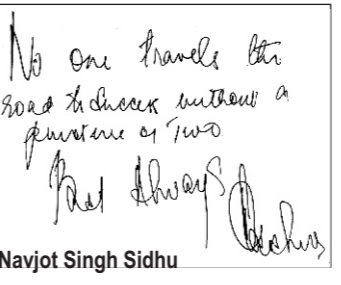 No one travels the
road to success without a
puncture or Two
Best Always
Navjot Singh Sidhu